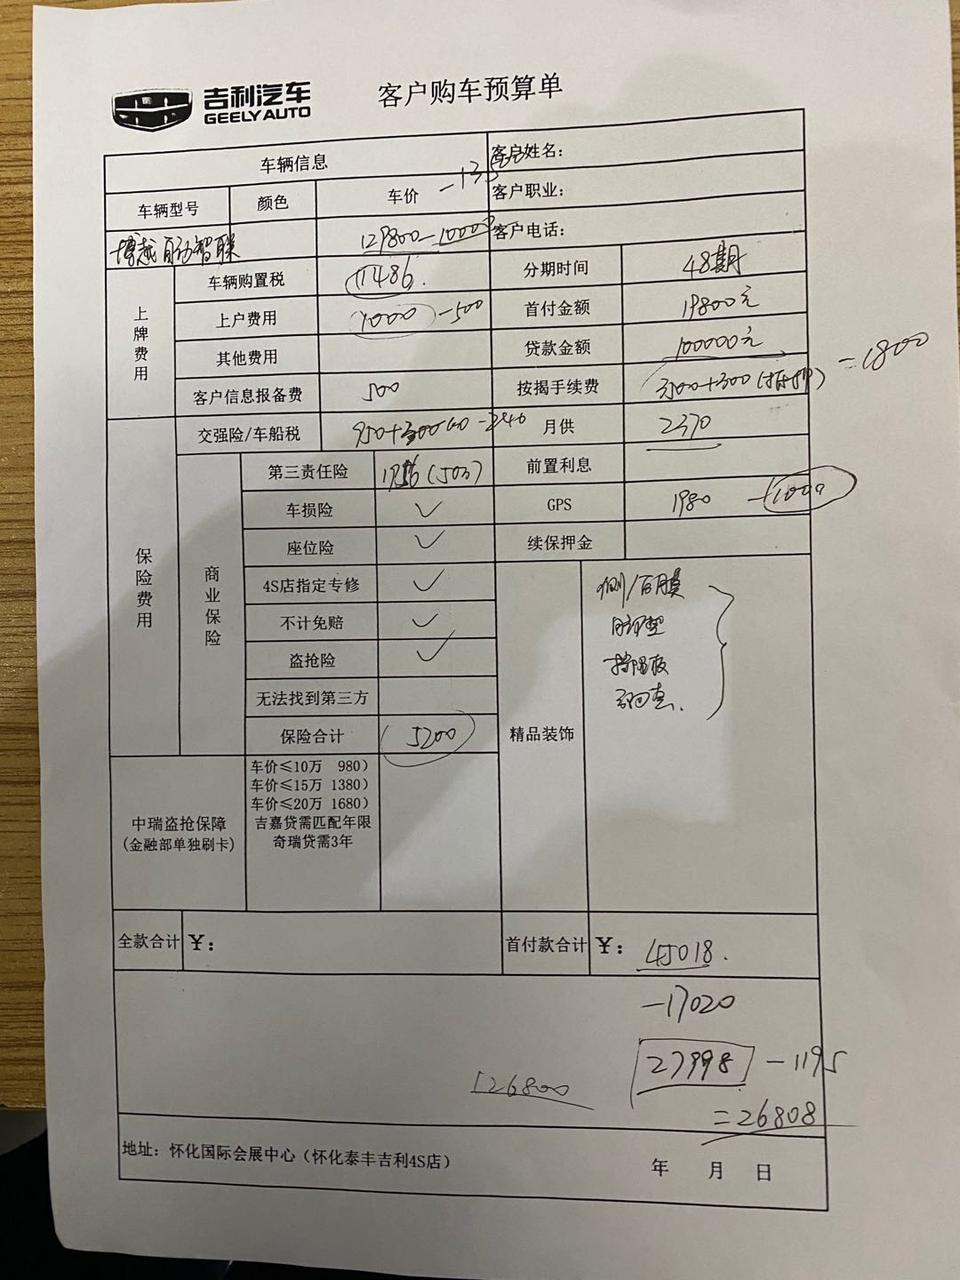 吉利汽车
GEELY AUTO
客户购车预算单
车辆信息
客户姓名：
车辆型号 颜色 车价
客户职业：
博越自动智联 129800-10000
客户电话：
上牌费用
车辆购置税 11486.
分期时间 48期
上户费用 1000 -500
首付金额 19800元
其他费用
贷款金额 100000元
客户信息报备费 500
按揭手续费 3500+300(抵押) =1800
保险费用
交强险/车船税
月供 2370
商业保险
第三责任险
前置利息
车损险 ✓
GPS 1980 -1000
座位险 ✓
续保押金
4S店指定专修 ✓
不计免赔 ✓
盗抢险 ✓
无法找到第三方
保险合计 5200
精品装饰
挡阳板
中瑞盗抢保障
(金融部单独刷卡)
车价≤10万 980）
车价≤15万 1380）
车价≤20万 1680）
吉嘉贷需匹配年限
奇瑞贷需3年
全款合计 ¥：
首付款合计 ¥： 45018.
-17020
27998 -1195
126800
=26808
地址：怀化国际会展中心（怀化泰丰吉利4S店）
年 月 日